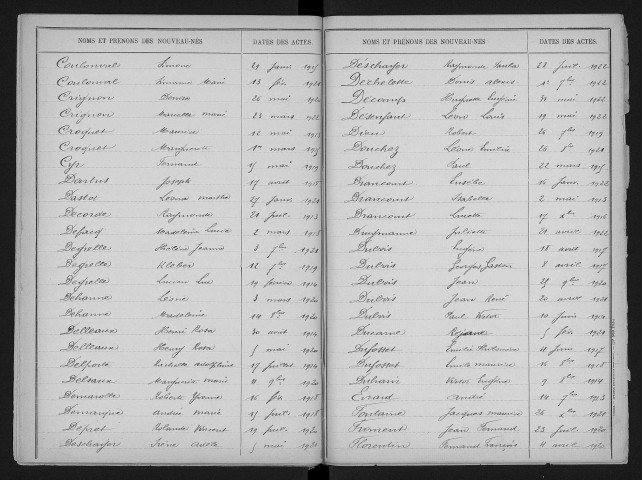 NOMS ET PRÉNOMS DES NOUVEAU-NÉS DATES DES ACTES
Coulonval Simone 29 janv 1915
Coulonval 13 fév 1920
Crignon Denise 26 mai 1920
Crignon Marcelle 23 mars 1922
Croquet Maurice 12 mai 1913
Croquet Marguerite 1er mars 1915
Cyr Fernand 15 mai 1919
Dartus Joseph 17 août 1918
Dastot Léona Martha 27 janv 1921
Decorde Raymonde 21 juil 1913
Defacq Madeleine 2 mars 1918
Degrelle 3 1920
Degrelle Kléber 12 1919
Degrelle Lucien 19 février 1914
Dehanne Léone 3 mars 1920
Dehanne Madeleine 14 8bre 1920
Delleaux Henri Rosa 30 août 1914
Delleaux Henry Rosa 5 mai 1920
Delporte Rachelle 17 juillet 1914
Delvaux Marguerite Marie 11 9bre 1920
Demarolle Robert Yvonne 16 fév 1918
Demarque Andrée Marie 15 juil 1918
Depret Rolande 19 juil 1920
Descharfor Irène 5 mai 1920
NOMS ET PRÉNOMS DES NOUVEAU-NÉS DATES DES ACTES
Descharfor Raymonde Paula 28 juil 1922
Dechelotte Denis 1er 9bre 1922
Decamps Henriette 31 mai 1922
Desenfant Léon Louis 19 mai 1922
Robert 26 1919
Donchez Léone Emilie 26 1921
Donchez Paul 22 mars 1915
Drancourt Eusèbe 16 janv 1922
Drancourt Isabelle 2 mai 1913
Drancourt Lucette 17 Xbre 1916
Juliette 21 avril 1922
Dubois Eugène 18 août 1917
Dubois Georges Gaston 8 avril 1917
Dubois Jean 25 9bre 1920
Dubois Jean René 20 avril 1921
Dubois Paul Victor 10 juin 1914
Ducarne 5 fév 1921
Dufosset 11 juin 1917
Dufosset Emile Maurice 16 8bre 1918
Duhain Victor 9 8bre 1914
Evrard André 14 1913
Fontaine Jacques Maurice 26 Xbre 1921
Fremont Jean Fernand 23 juil 1920
Florentin Fernand François 4 avril 1920